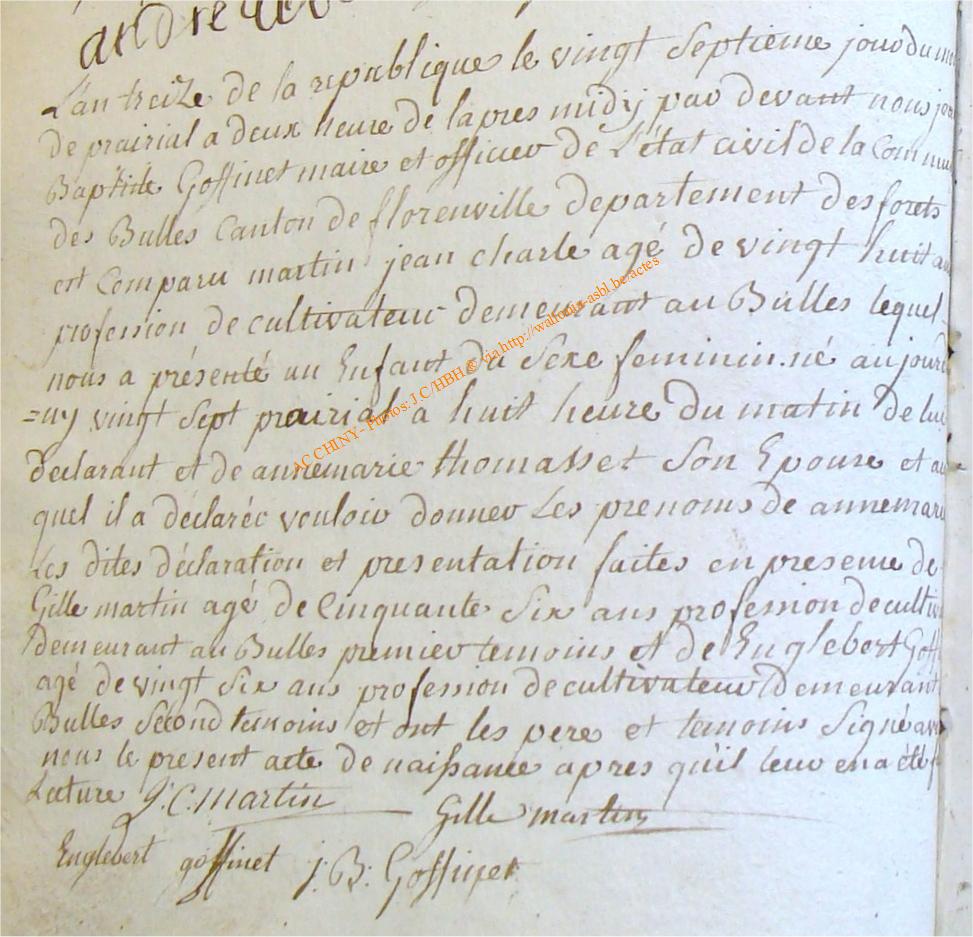 L'an treize de la republique le vingt Septieme jour du
de prairial a deux heure de lapres midy par devant nous
Baptiste Goffinet maire et officier de L'état civil de la Commu
des Bulles Canton de florenville departement des forets
est Comparu martin jean charle agé de vingt huit an
profession de cultivateur demeurant au Bulles lequel
nous a présenté un Enfant du Sexe feminin né aujourd
=uy vingt Sept prairial a huit heure du matin de lui
declarant et de annemarie thomasset Son Epouse et au
quel il a déclaréé vouloir donner Les prenoms de annemarie
Les dites déclaration et presentation faites en presence de
Gille martin agé de Cinquante Six ans profession de cultiv
demeurant au Bulles premier temoins et de Englebert Goffi
agé de vingt Six ans profession de cultivateur Demeurant
Bulles Second temoins et ont les pere et temoins Signé ave
nous le present acte de naissance apres qu'il leur en a été f
Lecture J. C. martin Gille martin
Englebert goffinet J: B: Goffinet
AC CHINY - Photos: J.C/HBH & via http://wallonia-asbl.be/actes